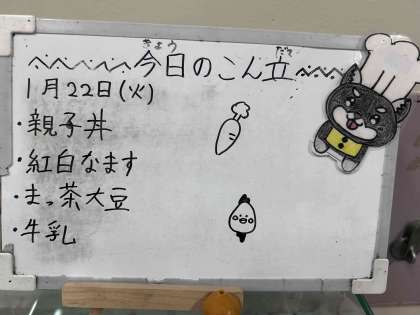 きょう だて
今日のこん立
1月22日(火)
・親子丼
・紅白なます
・まっ茶大豆
・牛乳